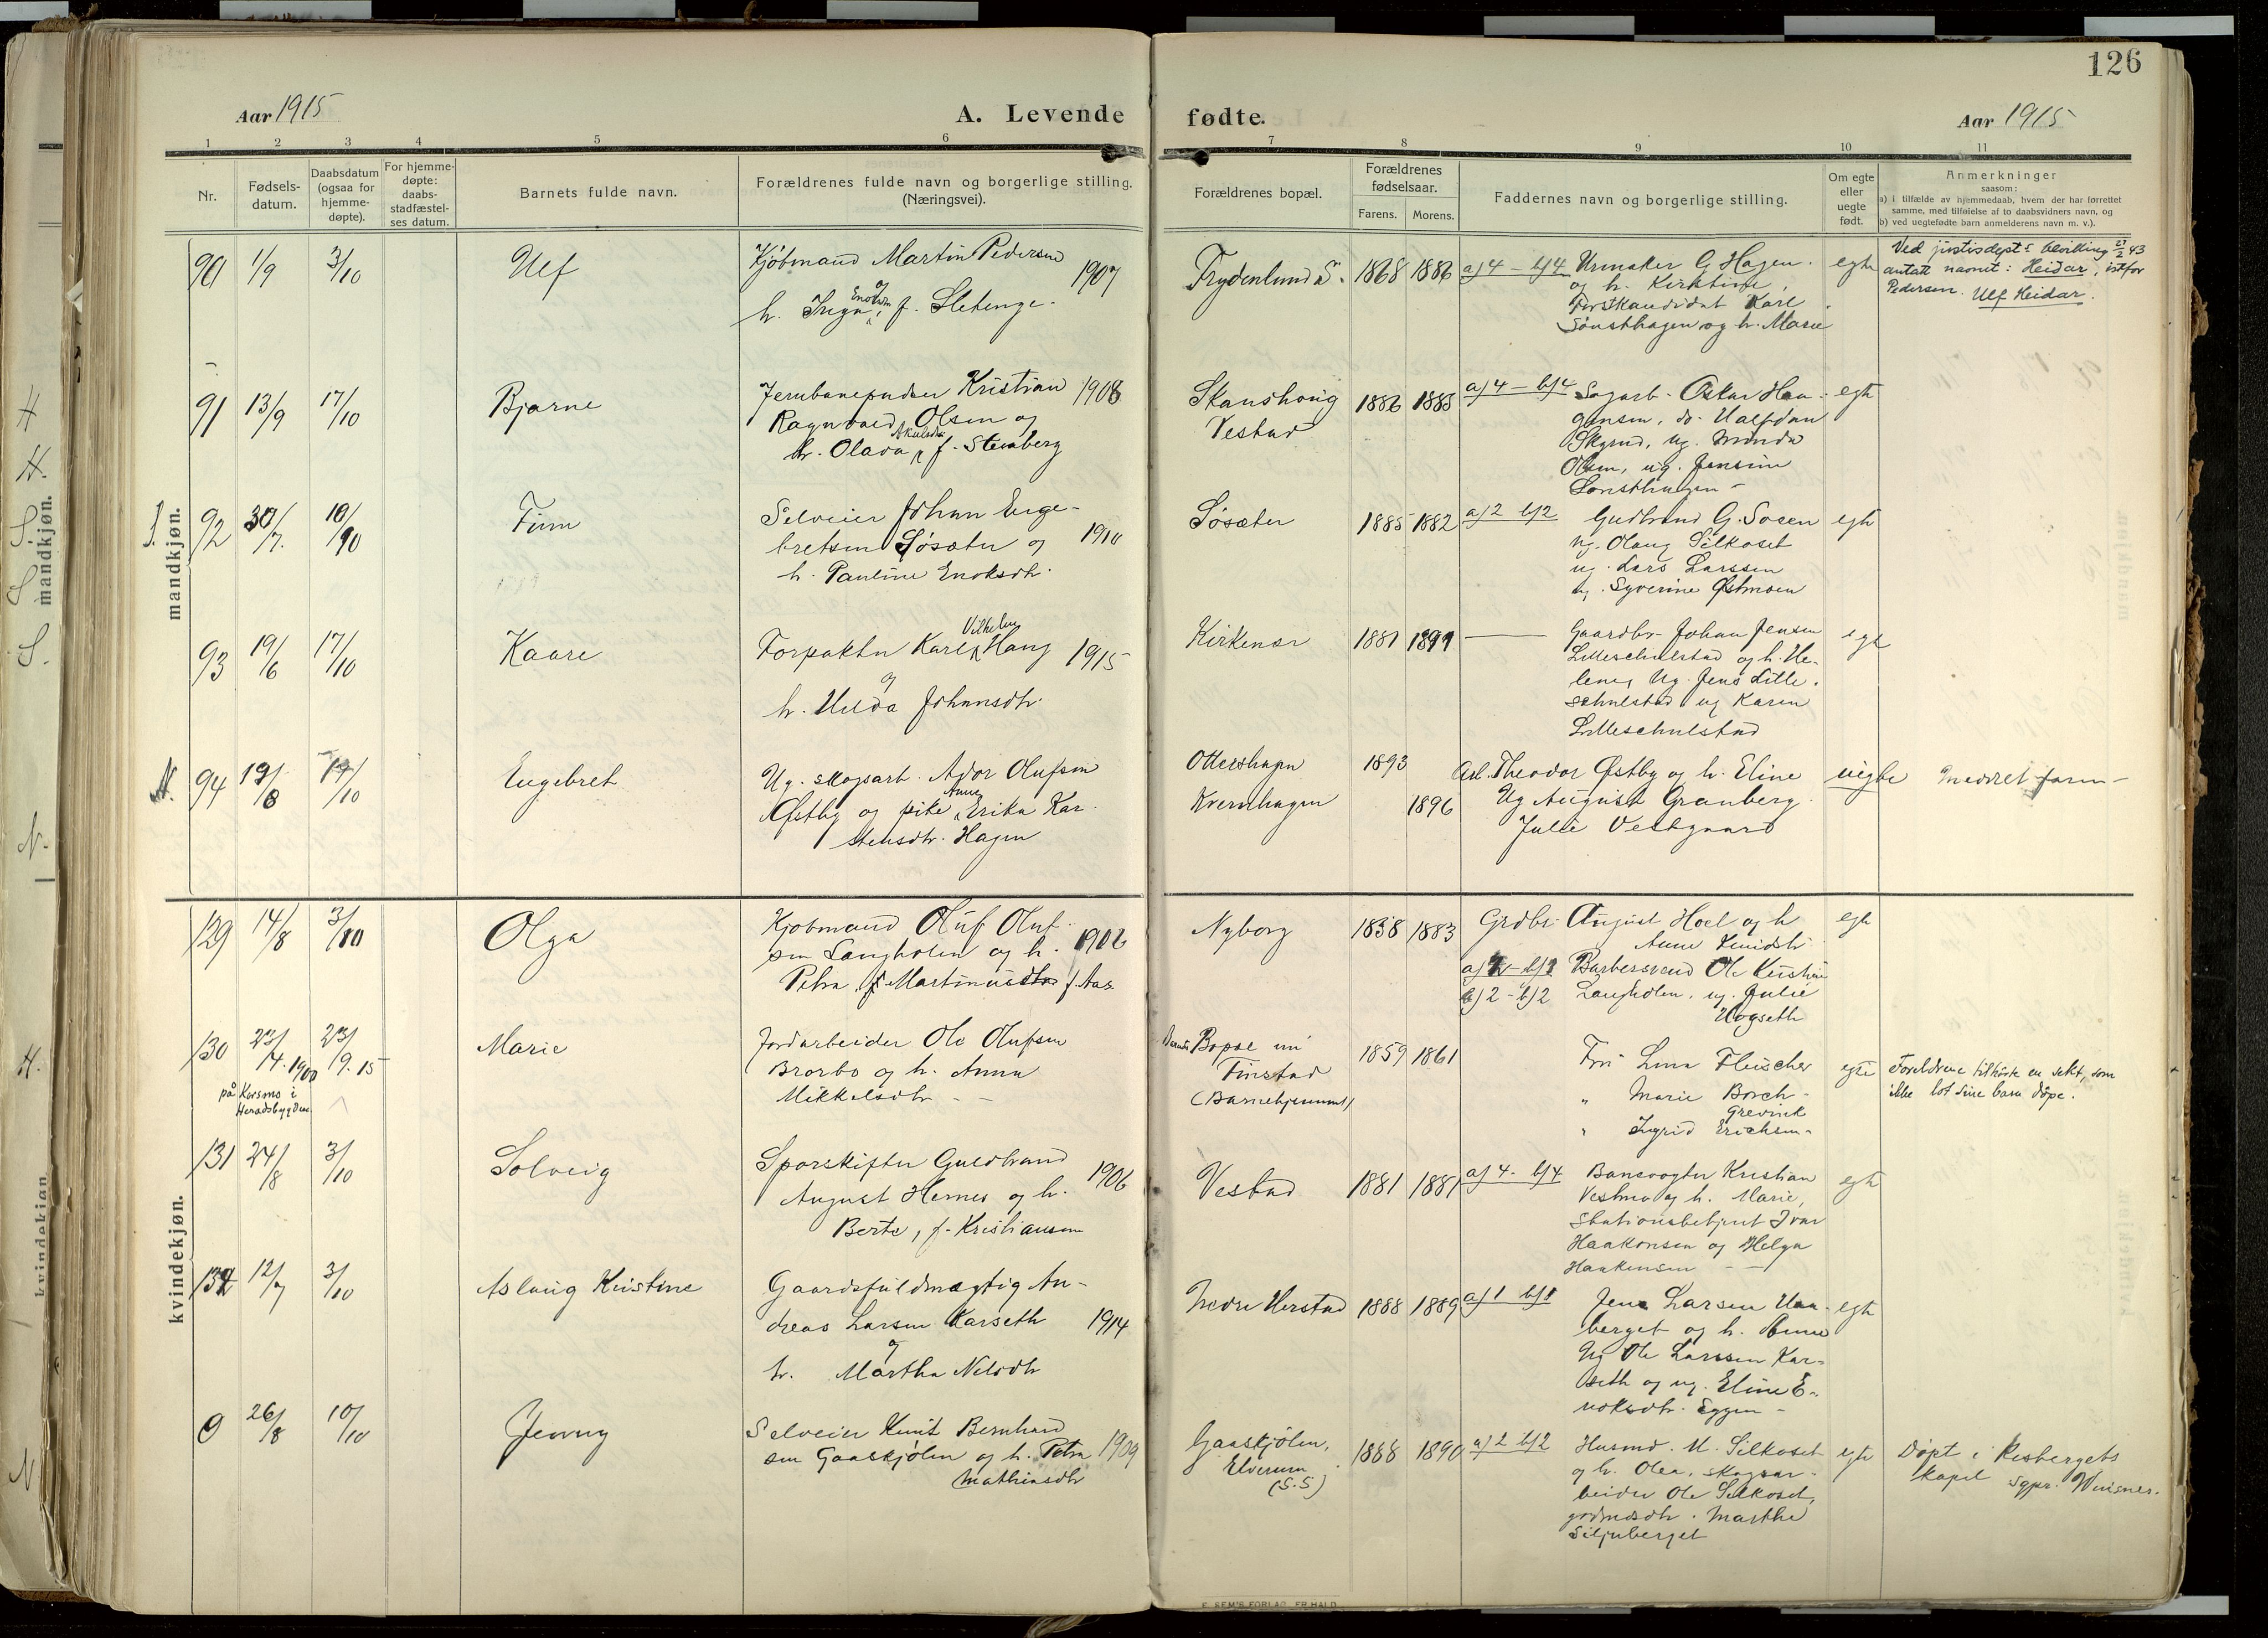 126
Aar 1915
A. Levende
fødte.
Aar 1915
1 2 3 4 5 6 7 8 9 10 11
Nr.
Fødsels-
datum.
Daabsdatum
(ogsaa for
hjemme-
døpte).
For hjemme-
døpte:
daabs-
stadfæstel-
ses datum.
Barnets fulde navn.
Forældrenes fulde navn og borgerlige stilling.
(Næringsvei).
Forældrenes bopæl.
Forældrenes
fødselsaar.
Farens. Morens.
Faddernes navn og borgerlige stilling.
Om egte
eller
uegte
født.
Anmerkninger
saasom:
a) i tilfælde av hjemmedaab, hvem der har forrettet
samme, med tilføielse af to daabsvidners navn, og
b) ved uegtefødte barn anmelderens navn m. v.).
mandkjøn.
90 1/9 3/10 Ulf
Kjøbmand Martin Pedersen 1907
og
h. Inga f. Sletenge.
Frydenlund S. 1868 1886 a)4 – b)4
Urmaker G Hagen.
og h. Kirstine,
Forstkandidat Karl
Sønsthagen og h. Marie
egte
Ved justisdept.s bevilling 27/2 43
antatt navnet: Heidar, istfor
Pedersen. Ulf Heidar.
91 13/9 17/10 Bjarne
Kristian 1908
Ragnvald Olsen og
h. Olava f. Stenberg
Skanshoug
Vestad
1886 1888 a)4 – b)4
Sagarb. Oskar Haa-
gensen, do. Halfdan
Skyrud, ug. Minda
Olsen, ug. Jensine
Sønsthagen –
egte
S. 92 30/7. 10/10 Finn
Selveier Johan Enge-
bretsen Søsæter og 1910
h. Pauline Enoksdtr.
Søsæter 1885 1882 a)2 b)2
Gudbrand G. Sosen
ug. Olaug Silkoset
ug. Lars Larssen
ug. Syverine Østmoen
egte
93 19/6 17/10 Kaare
Vilhelm
Forpakter Karl Haug 1915
og
h. Hilda Johansdtr.
Kirkenær 1881 1891
Gaardbr. Johan Jensen
Lilleschulstad og h. He-
lene, Ug. Jens Lille-
schulstad ug Karen
Lilleschulstad
egte
N. 94 19/8 17/10 Engebret
Ug. skogsarb. Ador Olufsen
Anne
Østby og pike Erika Kar-
stensdtr. Hagen
Ottershagen 1893
Kvernhagen 1896
Arb. Theodor Østby og h. Eline
Ug August Granberg.
Julie Vestgaard
uegte
kvindekjøn.
129 14/8 3/10 Olga
Kjøbmand Oluf Oluf-
sen Langholen og h. 1902
Petra, Martinusdtr f. Aas
Nyborg 1838 1883
Grdbr August Hoel og h
Anne Knudsdtr
Ole Kristian
b)2 – b)2 Langholen, ug. Julie
Hogseth
egte
130 23/4.1900 23/9.15 Marie
på Korsmo i
Heradsbygden
Jordarbeider Ole Olufsen
Brorbo og h. Anna
Mikkelsdtr – –
Bopæl nu
Finstad
(Barnehjemmet)
1859 1861
Frk Lina Fleischer
„ Marie Borch-
Grevink
„ Ingrid Erichsen
egte
Foreldrene tilhørte en sekt, som
ikke lot sine barn døpe.
131 24/8 3/10 Solveig
Sporskifter Guldbrand 1906
August Hernes og h.
Berte, f. Kristiansen
Vestad 1881 1881 a)4 – b)4
Banevogter Kristian
Vestmo og h. Marie,
Stationsbetjent Ivar
Haakonsen og Helga
Haakensen – –
egte
132 12/7 3/10 Aslaug Kristine
Gaardsfuldmægtig An-
dreas Larsen Karseth 1914
og
h. Martha Nilsdtr
Nedre Herstad 1888 1889 a)1 b)1
Jens Larsen Haa-
berget og h. Anne
Ug Ole Larssen Kar-
seth og ug. Eline E-
noksdtr. Eggen –
egte
0 26/8 10/10 Jenny
Selveier Knut Bernhard-
sen Gaaskjølen og h. Petra 1909
Mathiasdtr
Gaaskjølen,
Elverum
(S.S)
1888 1890 a)2 b)2
Husmd. M. Silkoset
og h. Olea, skogsar-
beider Ole Silkoset,
grdmdsdtr. Marthe
Siljuberget
egte
Døpt i Risbergets
kapel sgpr. Wiisner.
E. SEM'S FORLAG FR.HALD